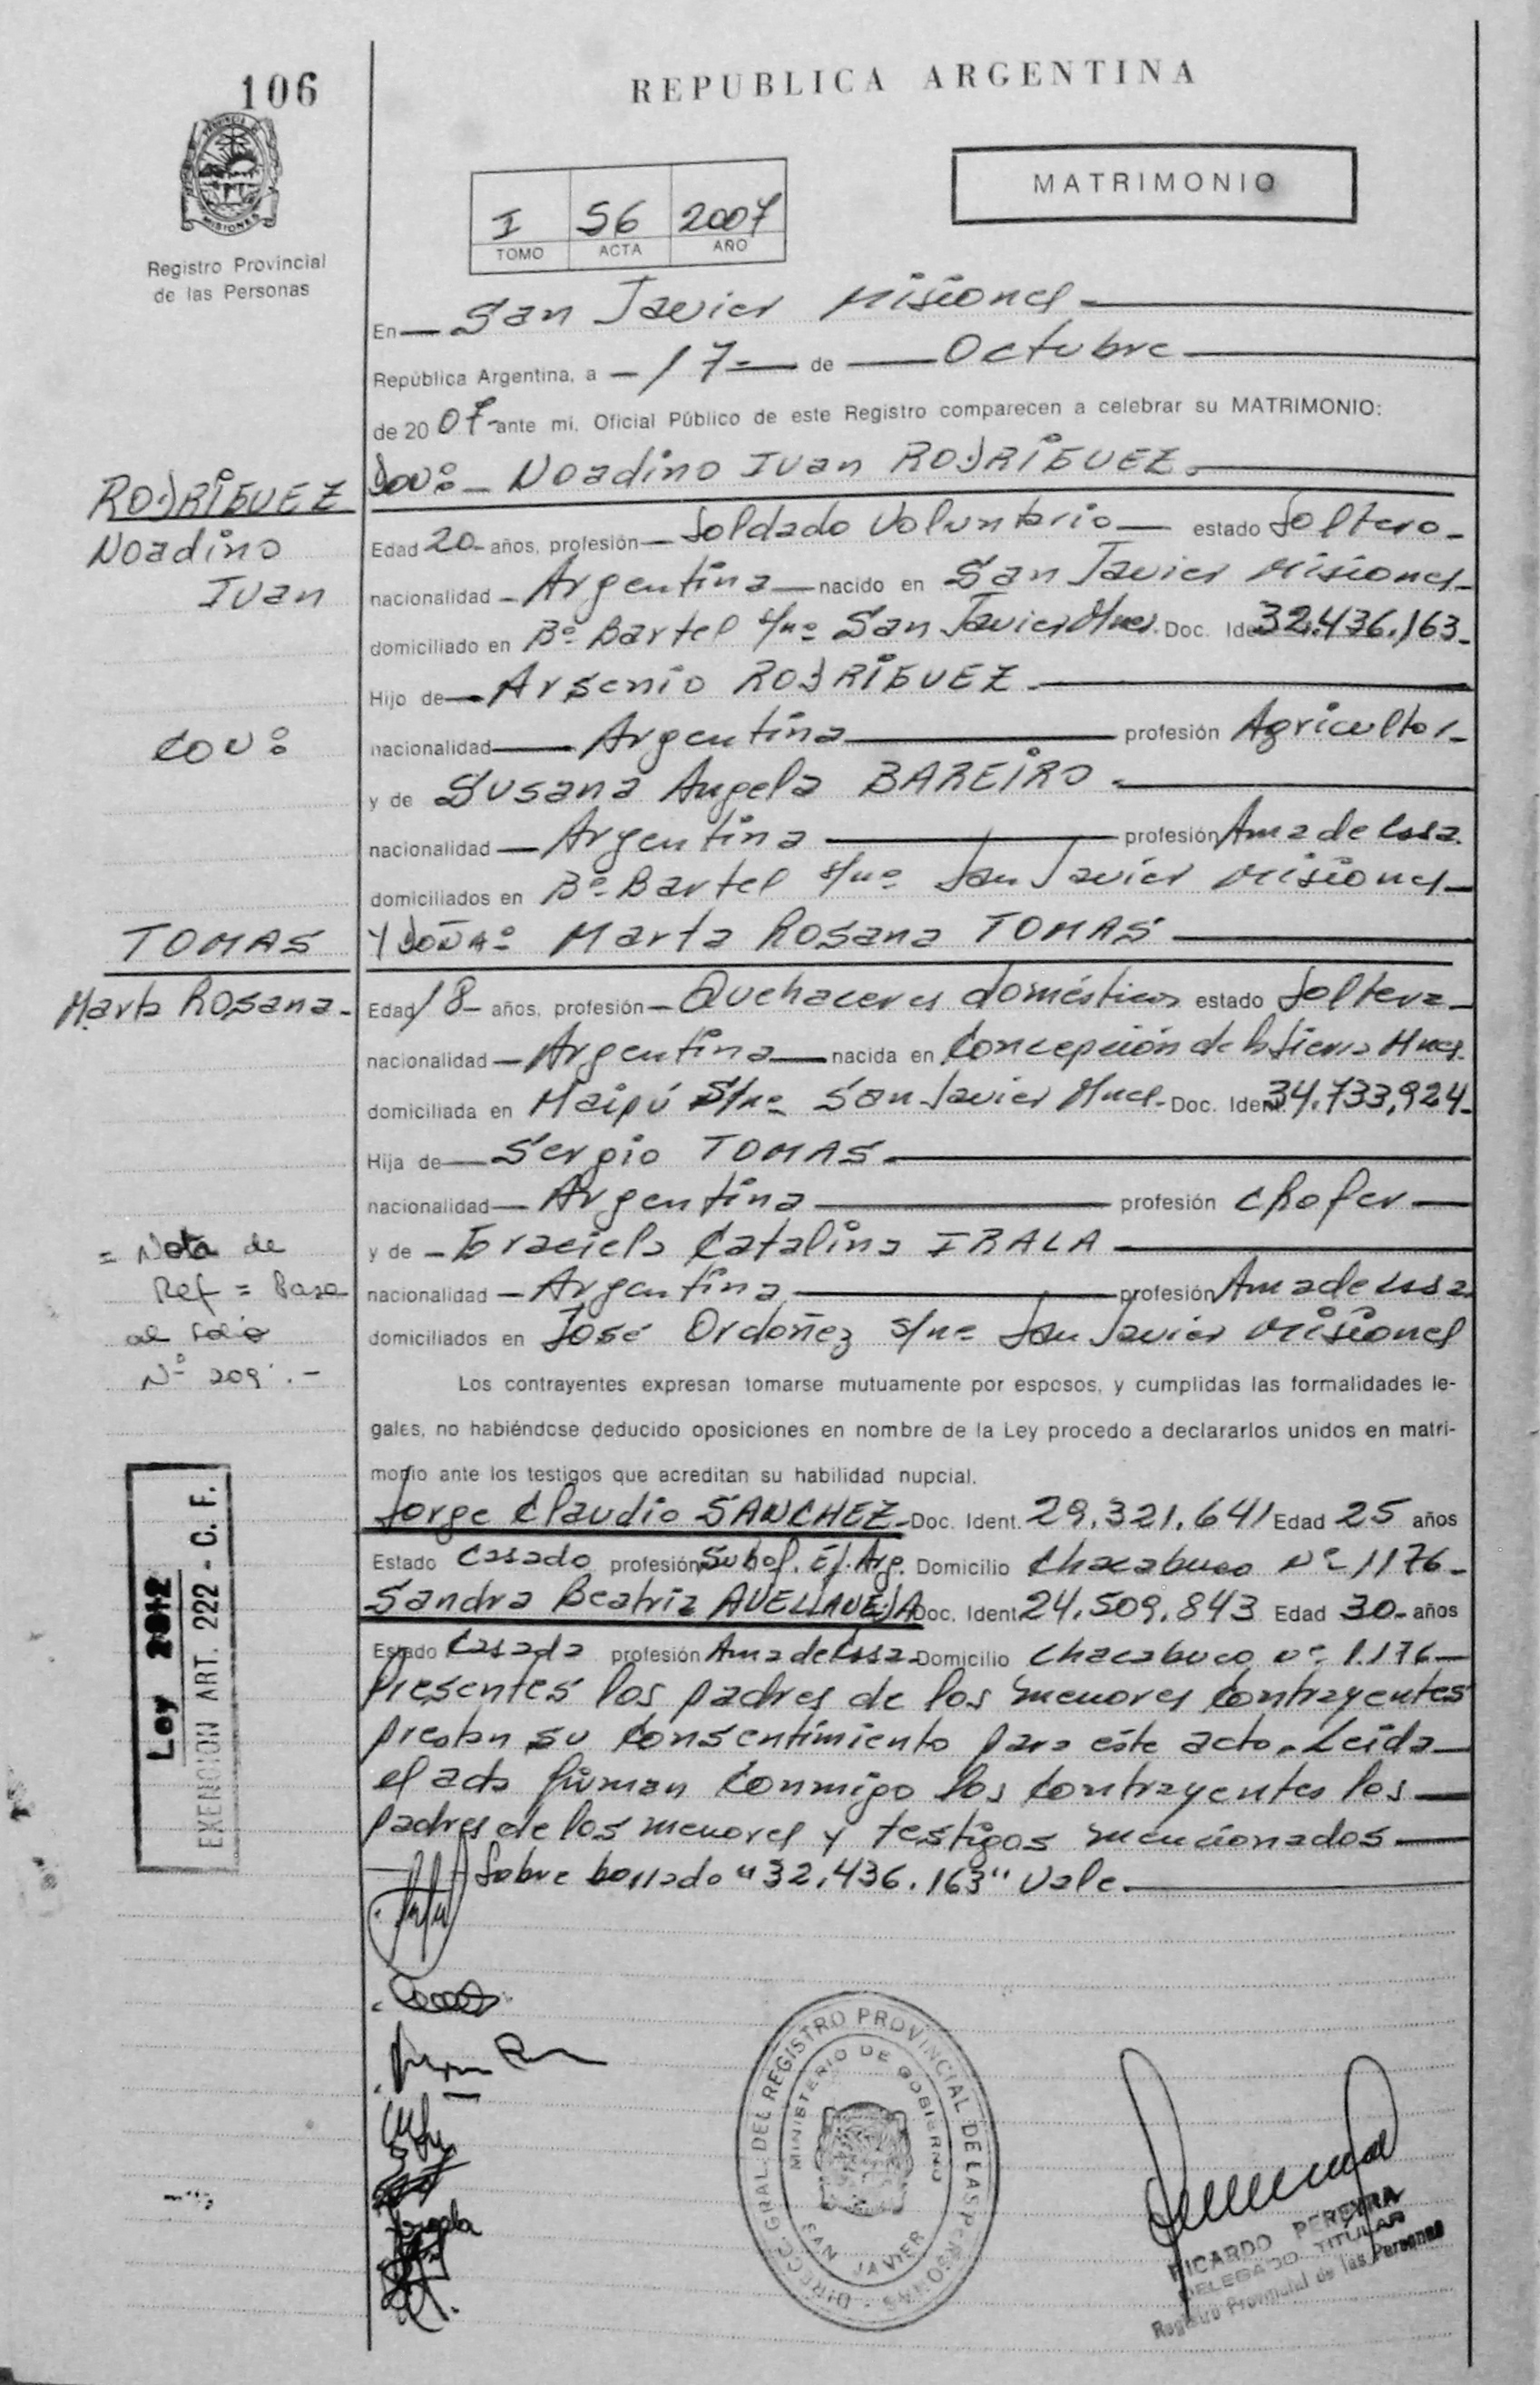 106
REPUBLICA ARGENTINA
MATRIMONIO
I 56 2007
TOMO ACTA AÑO
PROVINCIA DE
MISIONES
Registro Provincial
de las Personas
En San Javier Misiones
República Argentina, a 17 de Octubre
de 2007 ante mi, Oficial Público de este Registro comparecen a celebrar su MATRIMONIO:
RODRIGUEZ
Noadino
Ivan
DON: Noadino Ivan RODRIGUEZ
Edad 20 años, profesión Soldado Voluntario estado Soltero
nacionalidad Argentina nacido en San Javier Misiones
domiciliado en Bº Bartel s/nº San Javier Mnes. Doc. Ident. 32.436.163
Hijo de Arsenio RODRIGUEZ
CON:
nacionalidad Argentina profesión Agricultor
y de Susana Angela BAREIRO
nacionalidad Argentina profesión Ama de Casa
domiciliados en Bº Bartel s/nº San Javier Misiones
TOMAS
Marta Rosana
Y DOÑA: Marta Rosana TOMAS
Edad 18 años, profesión Quehaceres domésticos estado Soltera
nacionalidad Argentina nacida en Concepción de la Sierra Mnes.
domiciliada en Maipú s/nº San Javier Mnes. Doc. Ident. 34.733.924
Hija de Sergio TOMAS
nacionalidad Argentina profesión Chofer
y de Graciela Catalina IRALA
nacionalidad Argentina profesión Ama de Casa
domiciliados en José Ordoñez s/nº San Javier Misiones
= Nota de
Ref = Pase
al folio
Nº 209.-
Los contrayentes expresan tomarse mutuamente por esposos, y cumplidas las formalidades le-
gales, no habiéndose deducido oposiciones en nombre de la Ley procedo a declararlos unidos en matri-
monio ante los testigos que acreditan su habilidad nupcial.
Jorge Claudio SANCHEZ Doc. Ident. 29.321.641 Edad 25 años
Estado Casado profesión Subof. Ej. Arg. Domicilio Chacabuco Nº 1176
Sandra Beatriz AVELLANEDA Doc. Ident. 24.509.843 Edad 30 años
Estado Casada profesión Ama de Casa Domicilio Chacabuco nº 1.176
Presentes los padres de los menores contrayentes
prestan su consentimiento para este acto. Leida
el acta firman conmigo los contrayentes los
padres de los menores y testigos mencionados
Sobre borrado "32.436.163" Vale.
Ley 2812
EXENCION ART. 222 - C. F.
DIRECC. GRAL. DEL REGISTRO PROVINCIAL DE LAS PERSONAS
MINISTERIO DE GOBIERNO
SAN JAVIER
RICARDO PEREYRA
DELEGADO TITULAR
Registro Provincial de las Personas